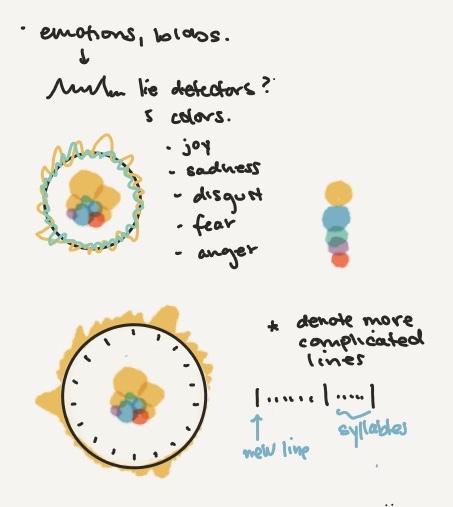 · emotions, blobs.
lie detectors?
5 colors.
· joy
- sadness
- disgust
- fear
- anger
* denote more
complicated
lines
|......|.....|
new line
syllables